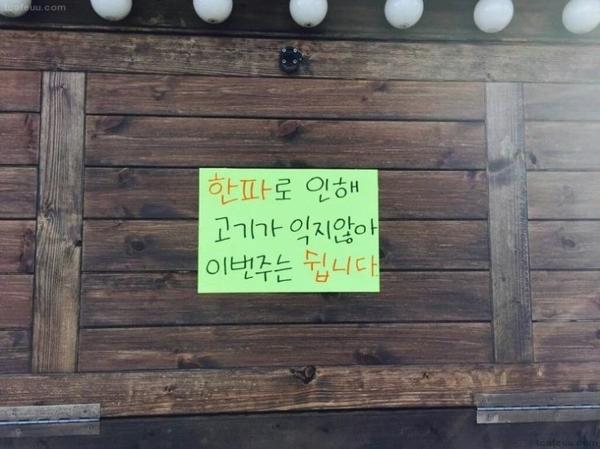 tcafeuu.com
한파로 인해
고기가 익지않아
이번주는 쉽니다
tcafeuu.com